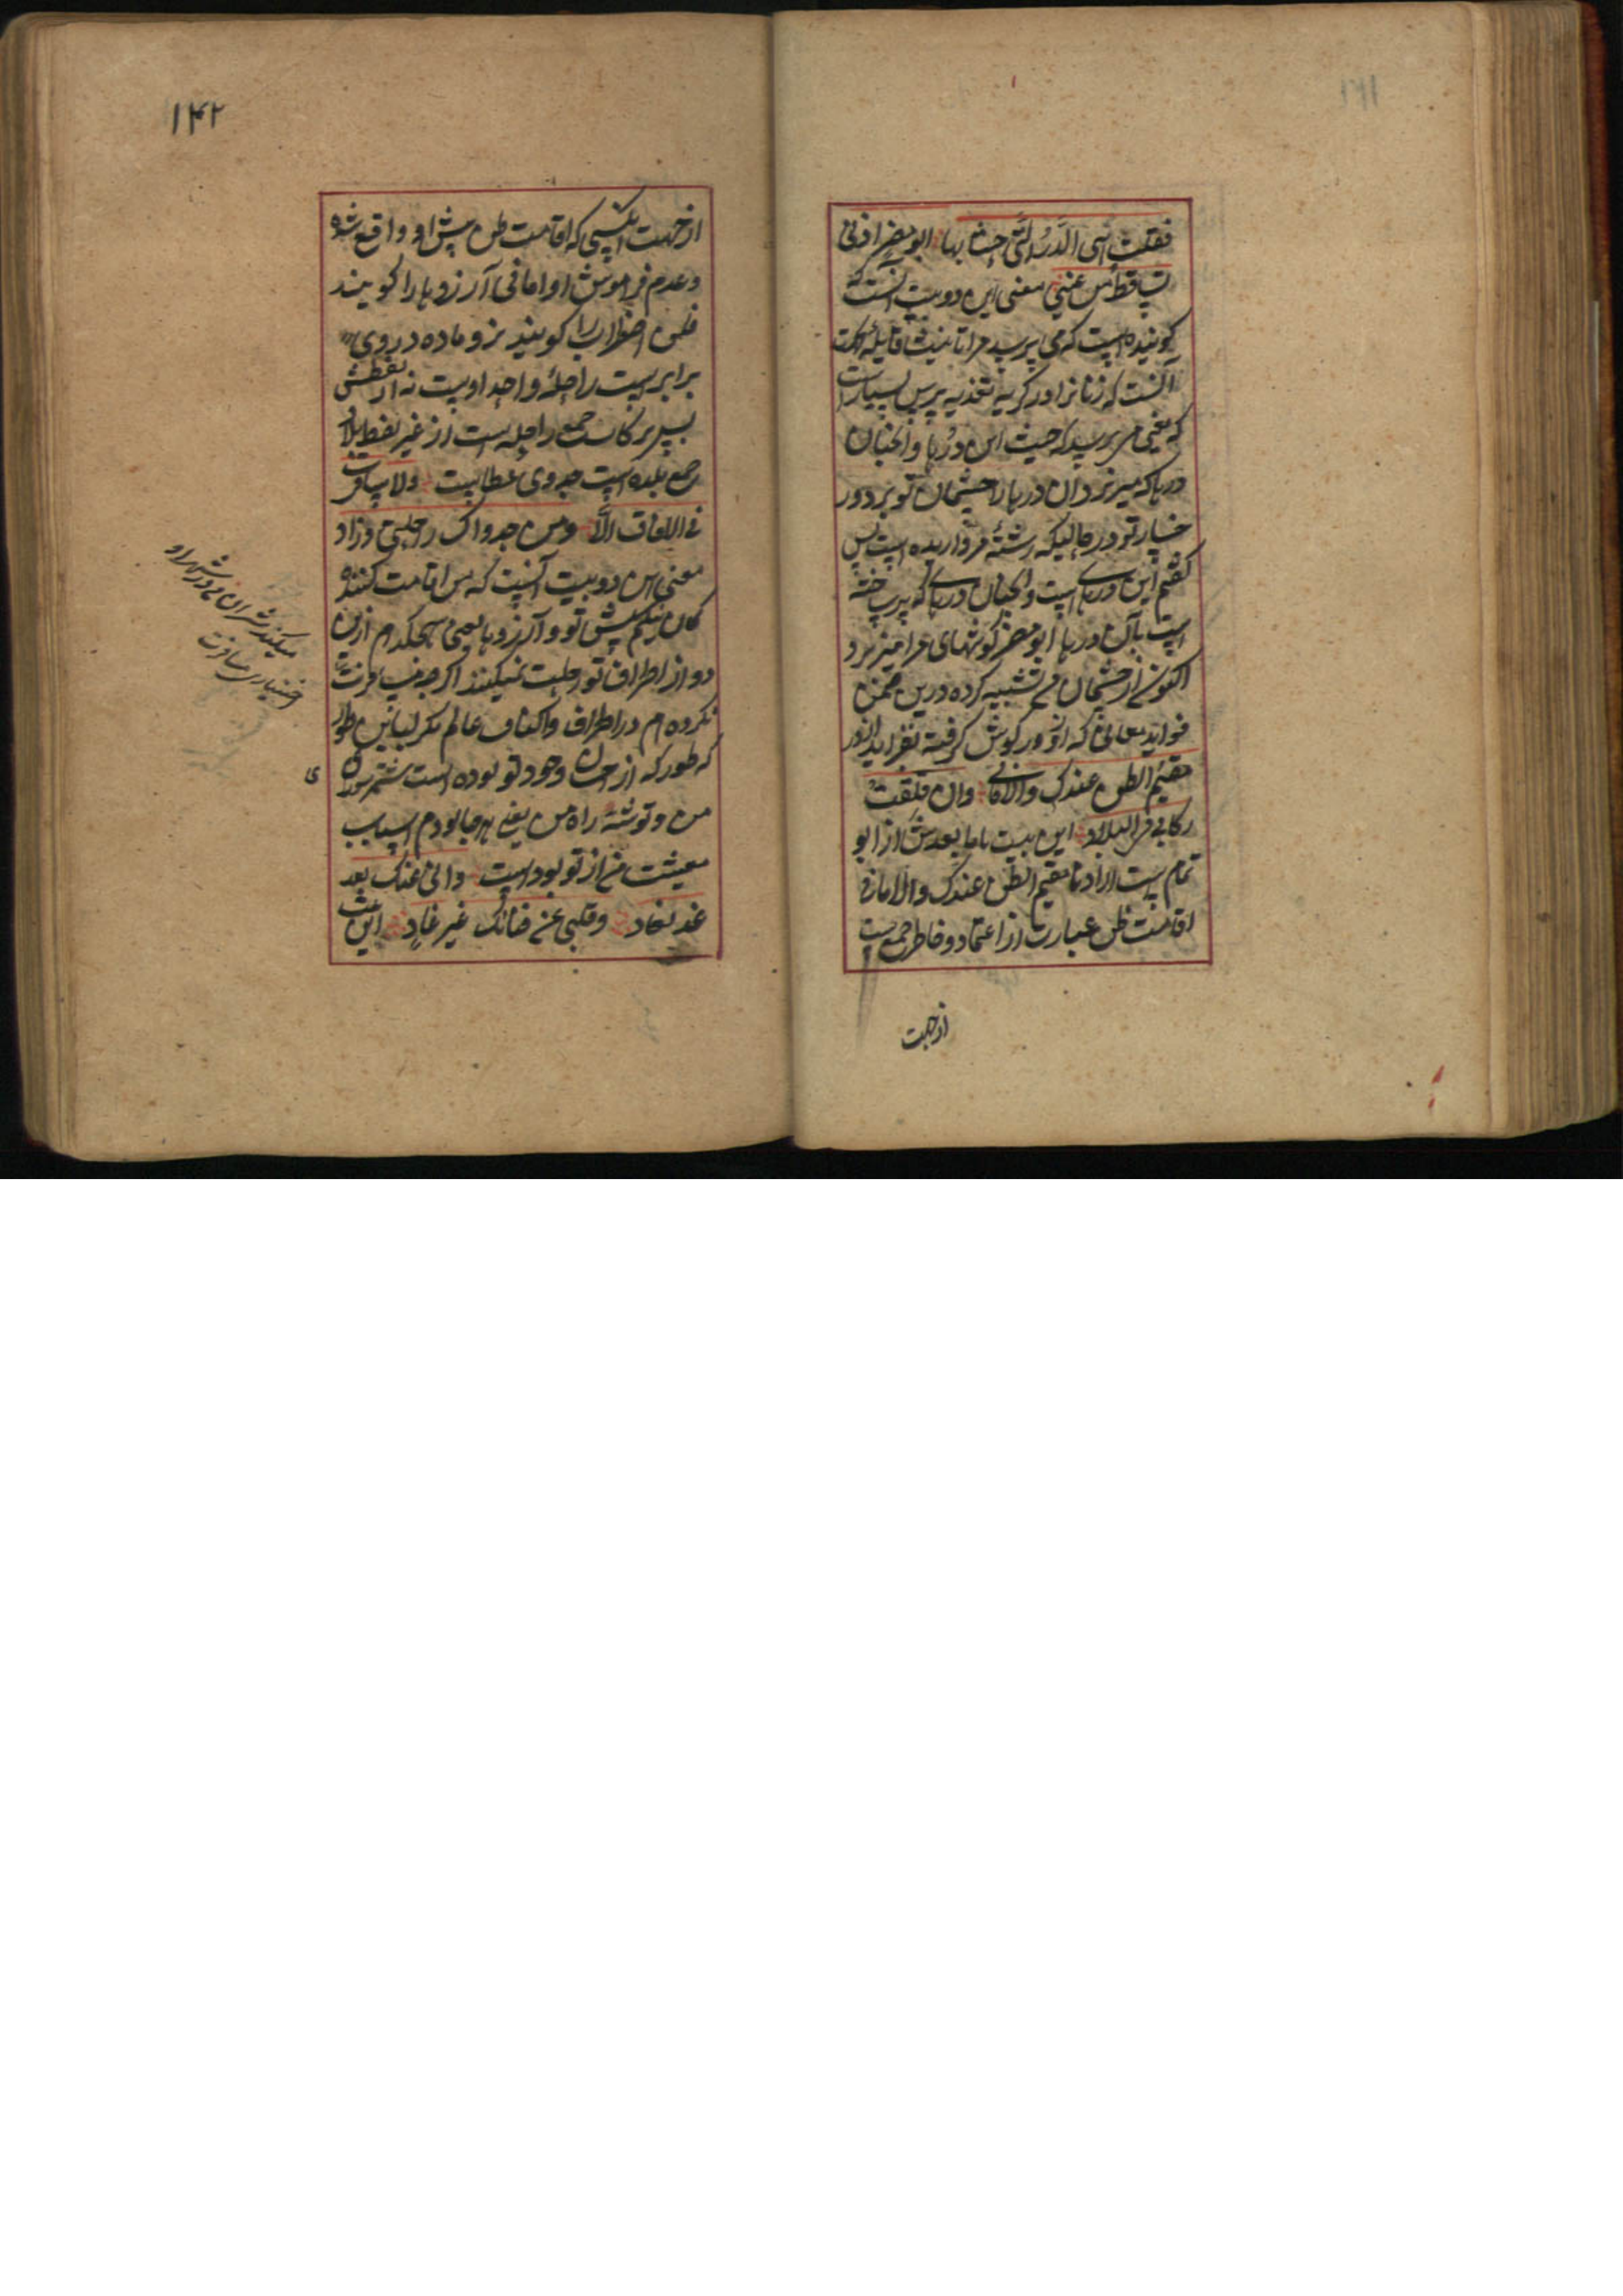 فقلت هی الدُّرُ الّتی حشا بها ابو مضر اذنی
تساقط من عینی معنی این دو بیت آنست که
کوینده است که می پرسید مرا تانیث قایله
آنست که زنانرا در کریه تعدیه پرس بسیار است
که یعنی می پرسید که چیست این دُرها و انچنان
درها که میریزد آن درها را چشمان تو بر دور
خسار تو در حالیکه رشتهٔ مرواریده است پس
کفتم این درهای است و انچنان درهای که پر ساخته
است بآن درها ابو مضر کوشهای مرا میریزد
اکنون از چشمان من تشبیه کرده درین ضمن
فواید معانی که ازو در کوش کرفته بفراید الدرر
مقیم الظن عندک والامانی وان قلقت
رکابی فی البلاد این بیت باما بعدش از ابو
تمام است اراد نا مقیم الظن عندک والامانی
اقامت ظن عبارت از اعتماد و خاطر جمعیست
ازجهت
۱۴۲
ازجهت کسی که اقامت ظن پیش او واقع شده
وعدم فراموش او امانی آرزوها را کویند
قلق اضطراب را کویند نر و ماده در وی
برابر است راحله واحد اوست نه از لفظش
پس رکاب جمع راحله است از غیر لفظ بلاد
جمع بلده است جدوی عطا است ولا سافرت
فی الافاق الّا ومن جدواک راحلتی وزاد
معنی این دو بیت آنست که پس اقامت کننده
کمان نیکم پیش تو و آرزوها یعنی هیچکدام ازین
دو از اطراف تو رحلت نمیکنند اکرچه مسافرت
نکرده ام در اطراف واکناف عالم مکر لباین طور
که طور که از احسان وجود تو بوده است شتر سواره
من وتوشهٔ راه من یعنی هر جا بودم اسباب
معیشت من از تو بود است وانی عنک بعد
غد لغاد وقلبی عن فنائک غیر غاد این
میکنند شتران من در شهر او
اختیاری مسافرت